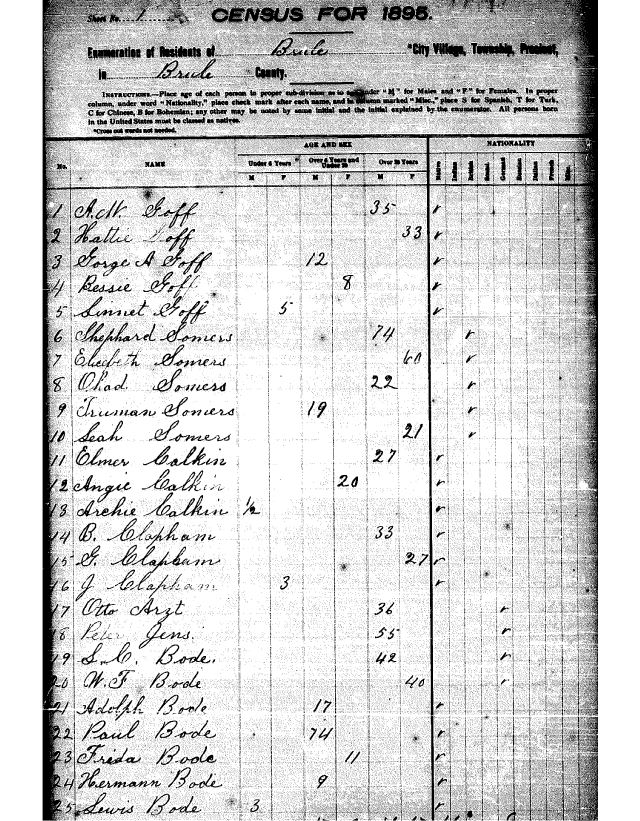 Sheet No. 1
CENSUS FOR 1895.
Enumeration of Residents of Brule *City Village, Township, Precinct,
in Brule County.
INSTRUCTIONS.—Place age of each person in proper sub-division as to age under "M" for Males and "F" for Females. In proper
column, under word "Nationality," place check mark after each name, and in column marked "Misc.," place S for Spanish, T for Turk,
C for Chinese, B for Bohemian; any other may be noted by some initial and the initial explained by the enumerator. All persons born
in the United States must be classed as natives.
*Cross out words not needed.
AGE AND SEX NATIONALITY
No. NAME Under 6 Years Over 6 Years and Under 20 Over 20 Years
M F M F M F
1 A.W. Goff 35 r
2 Hattie Goff 33 r
3 Gorge A Goff 12 r
4 Bessie Goff 8 r
5 Linnet Goff 5 r
6 Shephard Somers 74 r
7 Elizebeth Somers 60 r
8 Ohad Somers 22 r
9 Truman Somers 19 r
10 Leah Somers 21 r
11 Elmer Calkin 27 r
12 Angie Calkin 20 r
13 Archie Calkin 1/2 r
14 B. Clapham 33 r
15 G. Clapham 27 r
16 J Clapham 3 r
17 Otto Arzt 36 r
18 Peter Jens. 55 r
19 S.C. Bode. 42 r
20 W.F Bode 40 r
21 Adolph Bode 17 r
22 Paul Bode 74 r
23 Frida Bode 11 r
24 Hermann Bode 9 r
25 Lewis Bode 3 r